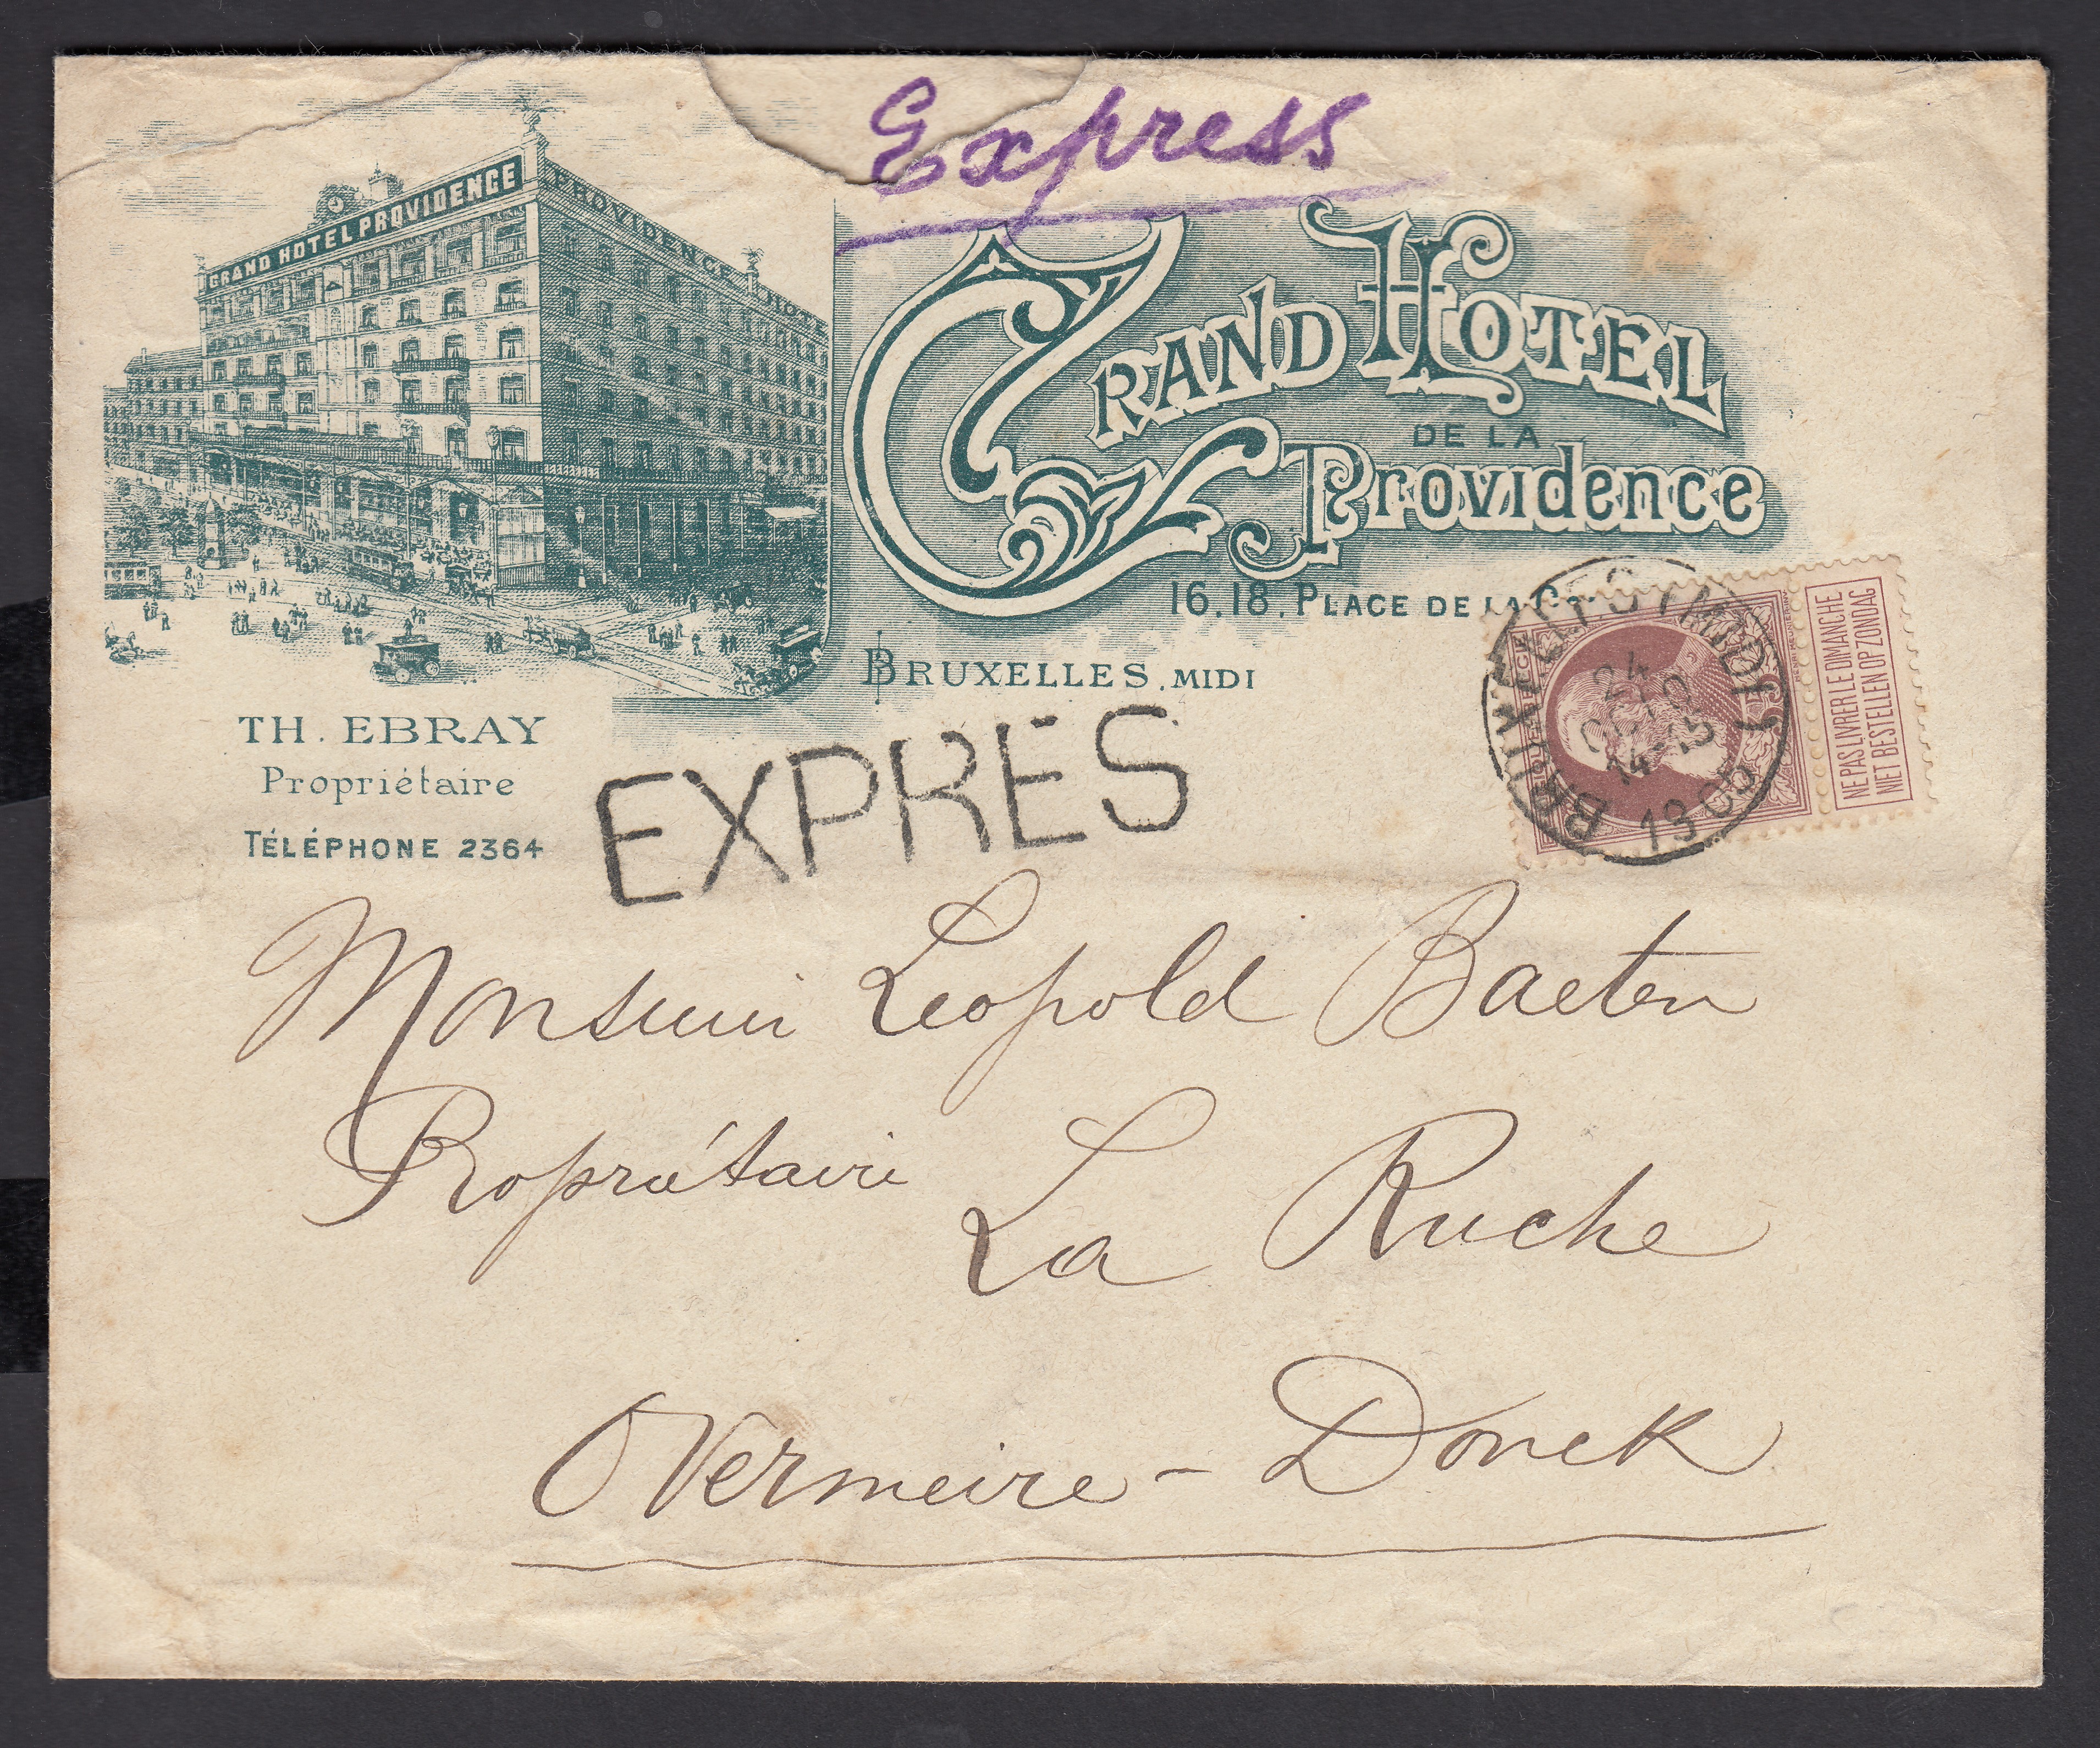 Express
GRAND HOTEL PROVIDENCE
PROVIDENCE HOTEL
GRAND HOTEL
DE LA
Providence
16.18. PLACE DE LA
BRUXELLES. MIDI
TH. EBRAY
Propriétaire
TÉLÉPHONE 2364
EXPRES
24
14-15
1905
NE PAS LIVRER LE DIMANCHE
NIET BESTELLEN OP ZONDAG
Monsieur Leopold Baeten
Propriétaire
La Ruche
Overmeire - Donck